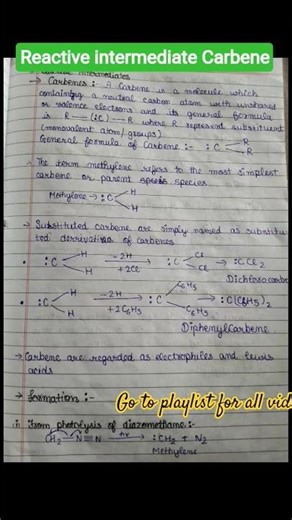 Reactive intermediate Carbene
intermediates
→ Carbenes :- A Carbene is a molecule which
containing a neutral carbon atom with unshared
valence electrons and its general formula
is R—(:C)—R where R represent substituent
(monovalent atom/groups)
General formula of Carbene :- :C R R
→ The term methylene refers to the most simplest
carbene or parent species
Methylene → :C H H
→ Substituted carbene are simply named as substitu
ted derivatives of carbenes
• :C H H -2H +2Cl :C Cl Cl → :CCl2
Dichlorocarbe
• :C H H -2H +2C6H5 :C C6H5 C6H5 → :C(C6H5)2
DiphenylCarbene
→ Carbene are regarded as electrophiles and lewis
acids
→ Formations :-
Go to playlist for all vid
i) From photolysis of diazomethane :-
CH2 = N = N hν → :CH2 + N2
Methylene